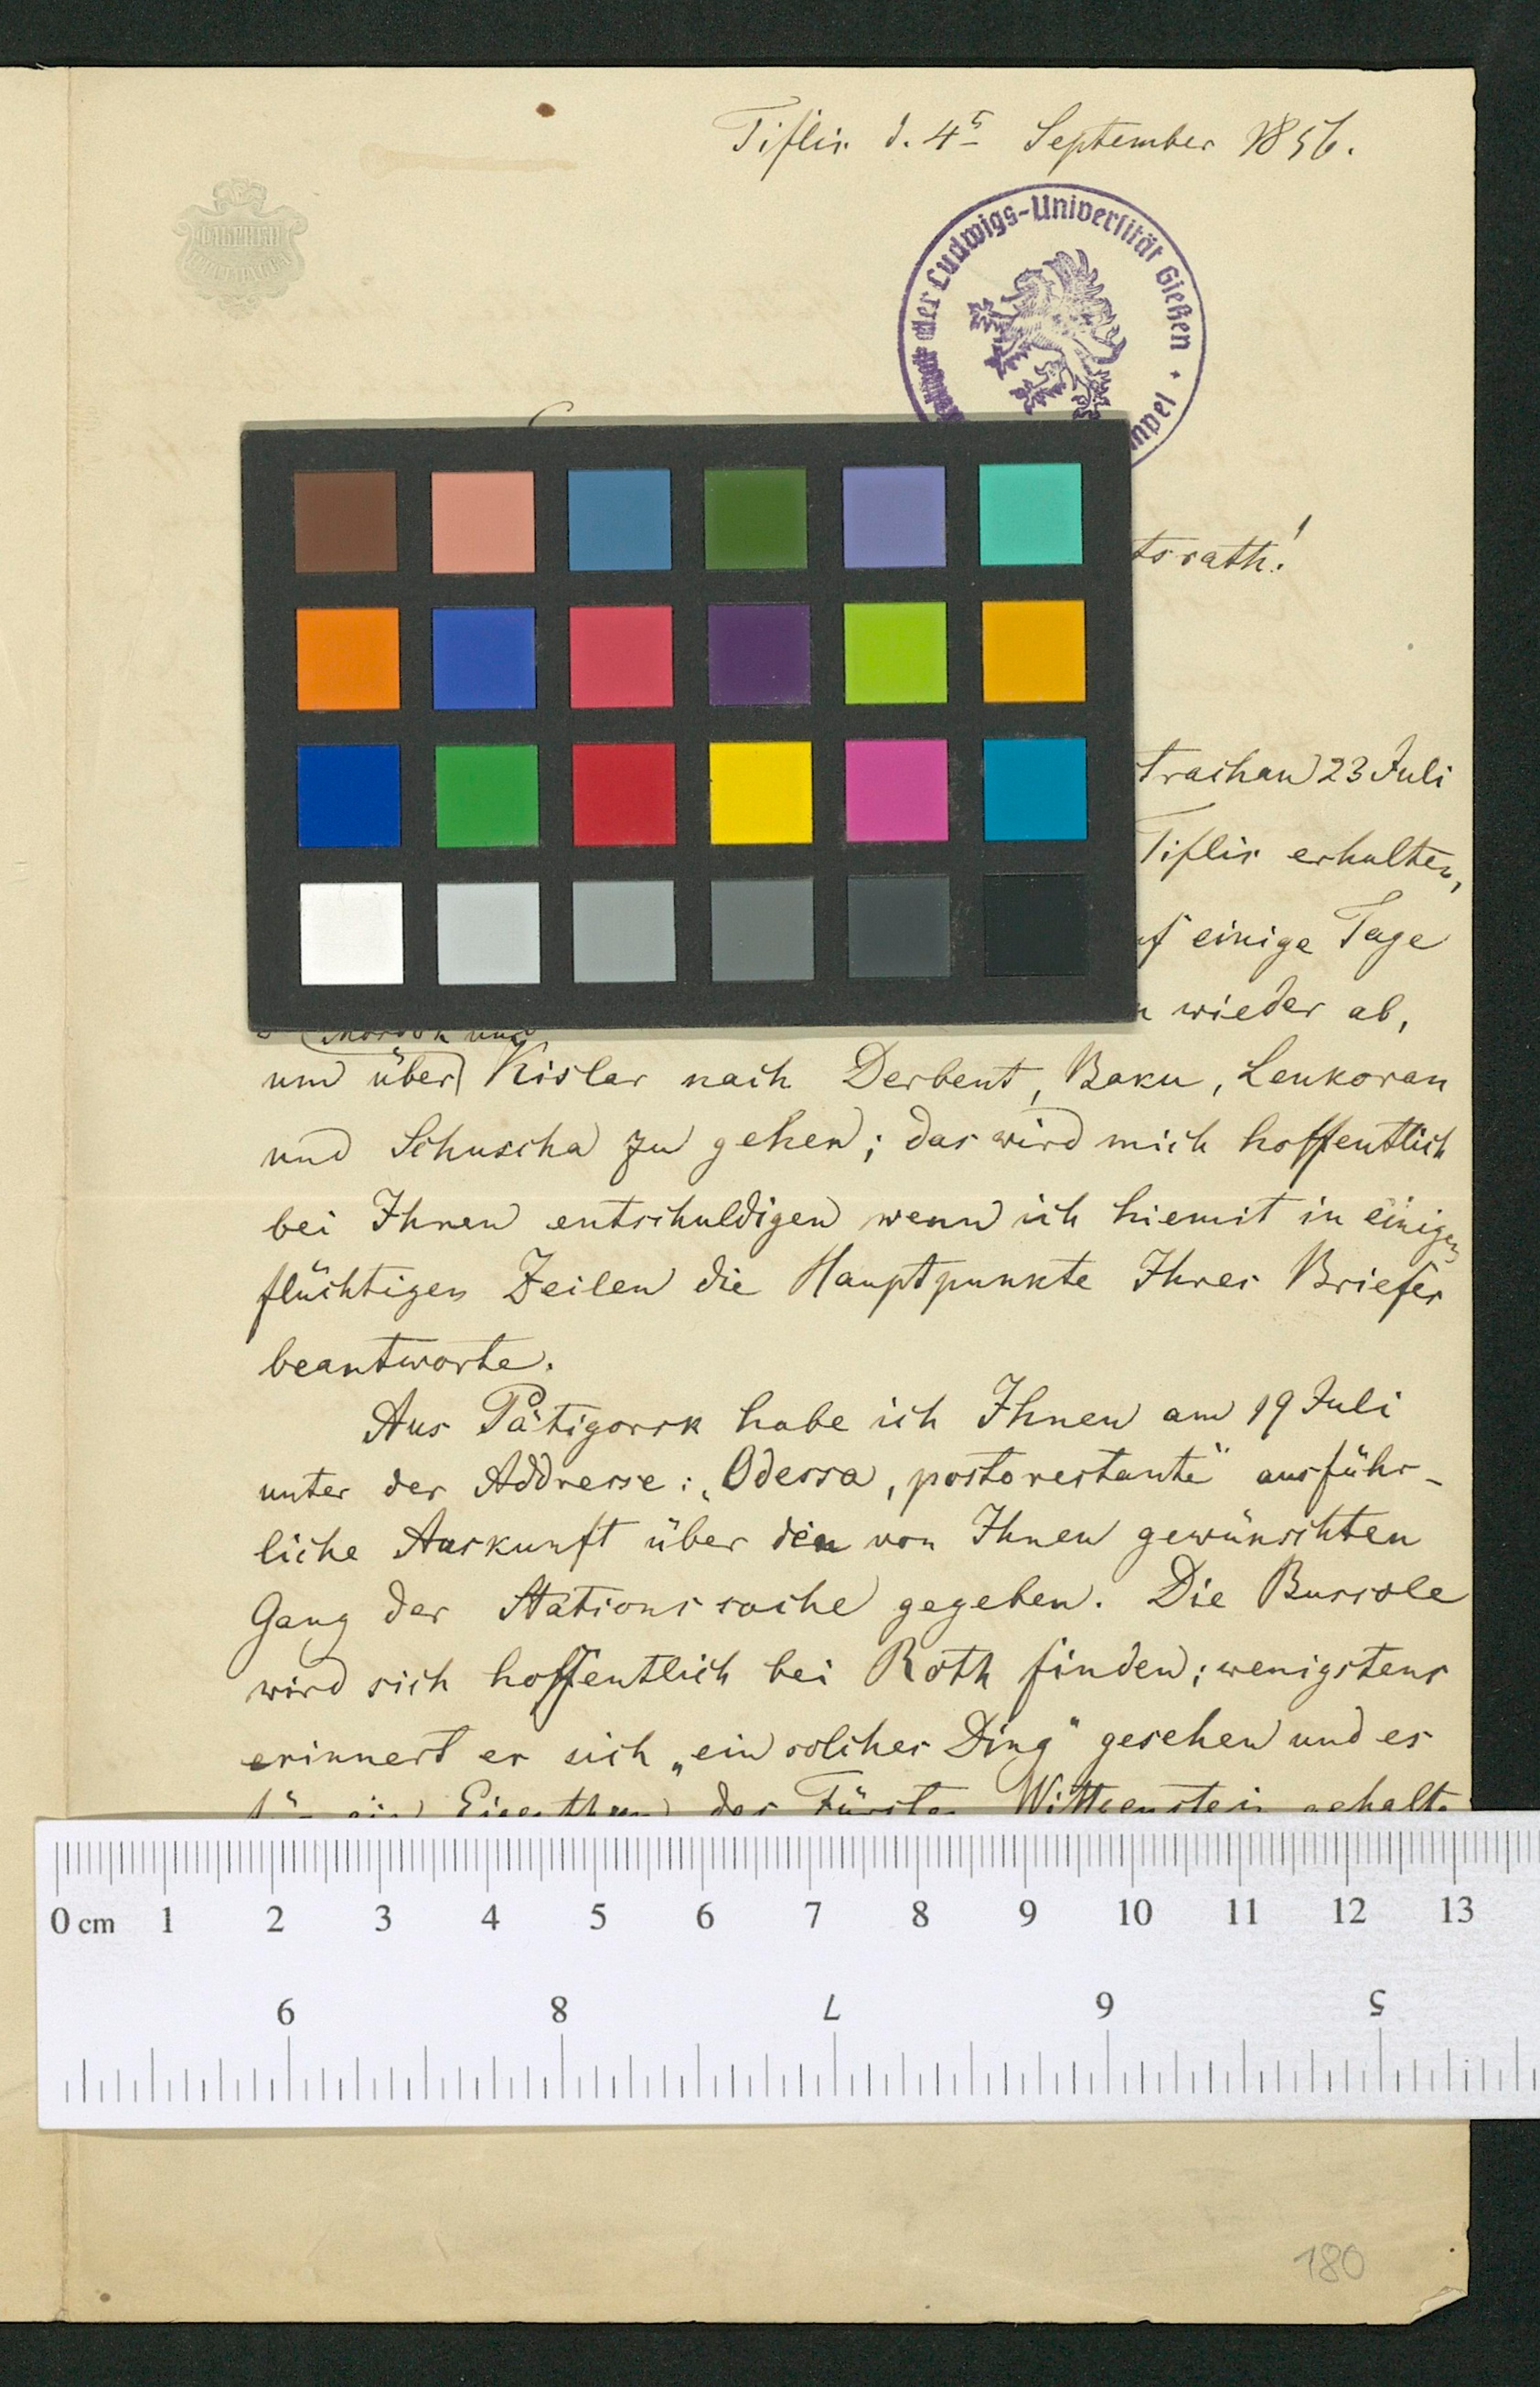 Tiflis d. 4t September 1856.
der Ludwigs-Universität Gießen
tsrath!
trachan 23 Juli
Tiflis erhalten,
einige Tage
wieder ab,
Mosdok und
um über Kislar nach Derbent, Baku, Lenkoran
und Schuscha zu gehen; das wird mich hoffentlich
bei Ihnen entschuldigen wenn ich hiemit in einigen
flüchtigen Zeilen die Hauptpunkte Ihres Briefes
beantworte.
Aus Pätigorsk habe ich Ihnen am 19 Juli
unter der Addresse: „Odessa, postorestante" ausführ-
liche Auskunft über den von Ihnen gewünschten
Gang der Stationssache gegeben. Die Bussole
wird sich hoffentlich bei Roth finden; wenigstens
erinnert er sich „ein solches Ding" gesehen und es
für ein Eigenthum des Fürsten Wittgenstein gehalten
0 cm 1 2 3 4 5 6 7 8 9 10 11 12 13
9 8 7 6 5
180